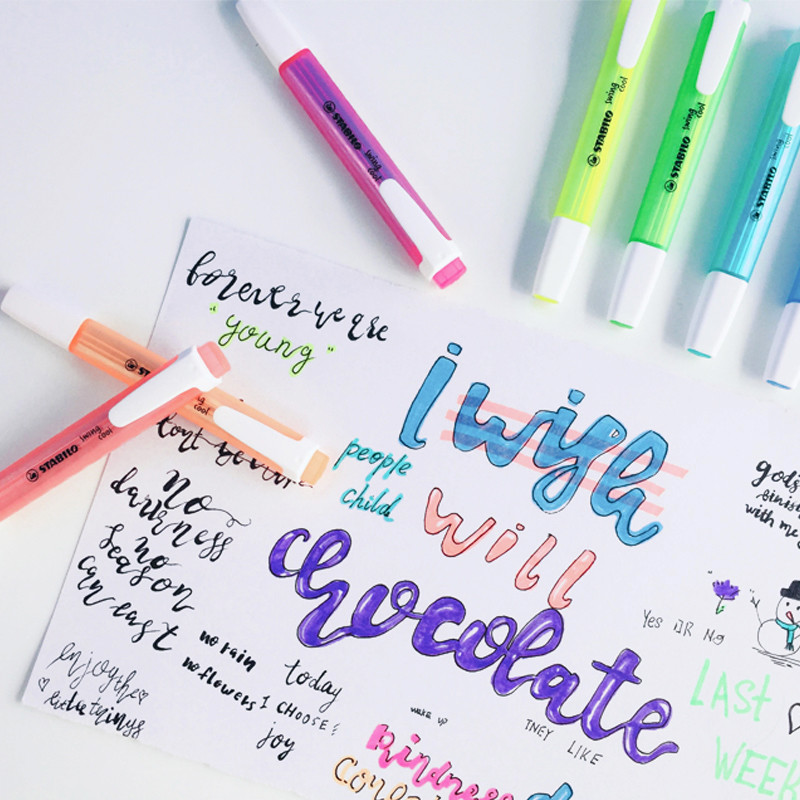 STABILO swing cool
STABILO swing cool
STABILO swing cool
STABILO swing cool
STABILO swing cool
forever we are
"young"
people
child
I wish
will
chocolate
No
darkness
No
season
can east
no rain
no flowers
enjoy the
little things
today
I CHOOSE
joy
wake up
THEY LIKE
kindness
Yes OR No
LAST
WEEK
with me